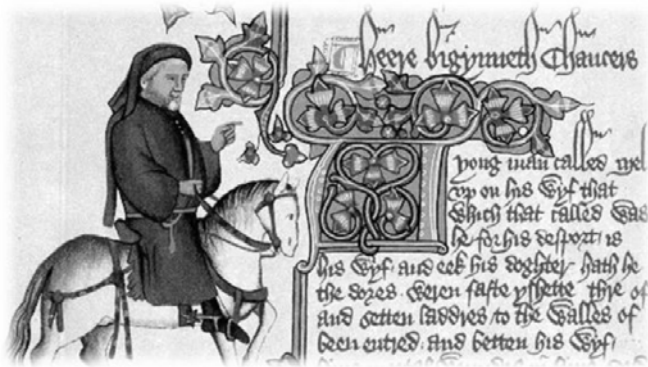 Heere bigynneth Chaucers
yong man called Mel
vp on his Wyf that
Which that called Was
he for his desport is
his Wyf and eek his doghter hath he
the dores Weren faste yshette thre of
and setten laddres to the Walles of
been entred and betten his Wyf